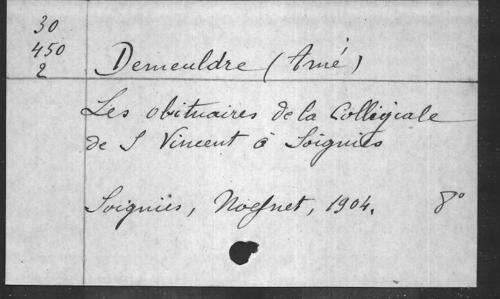 30
450
2
Demeuldre (Amé)
Les obituaires de la Collégiale
de S Vincent à Soignies
Soignies, Noëfnet, 1904. 8°